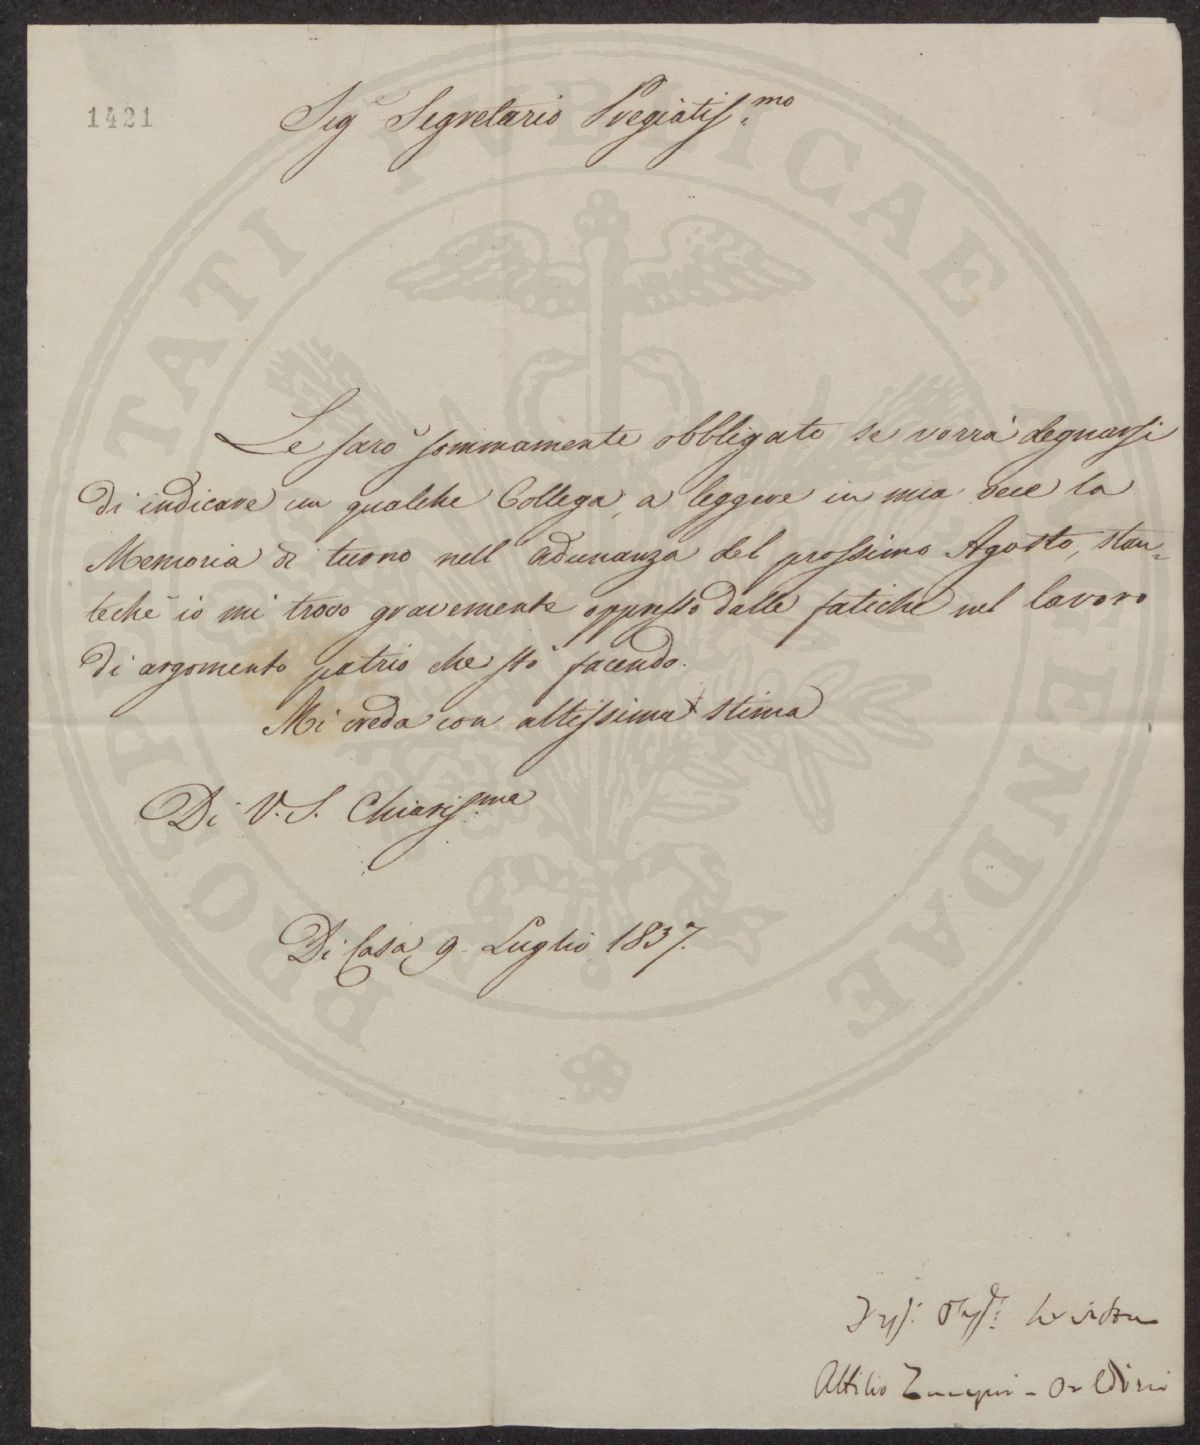 1421
Sigr Segretario Pregiatis.mo
Le sarò sommamente obbligato se vorrà degnarsi
di indicare un qualche Collega, a leggere in mia vece la
Memoria di turno nell adunanza del prossimo Agosto, stan-
techè io mi trovo gravemente oppresso dalle fatiche nel lavoro
di argomento patrio che stò facendo.
Mi creda con altissima stima
Di V. S. Chiaris.ma
Di Casa, 9 Luglio 1837.
Attilio Zuccagni-Orlandini
PROSPERITATI PUBLICAE AUGENDAE